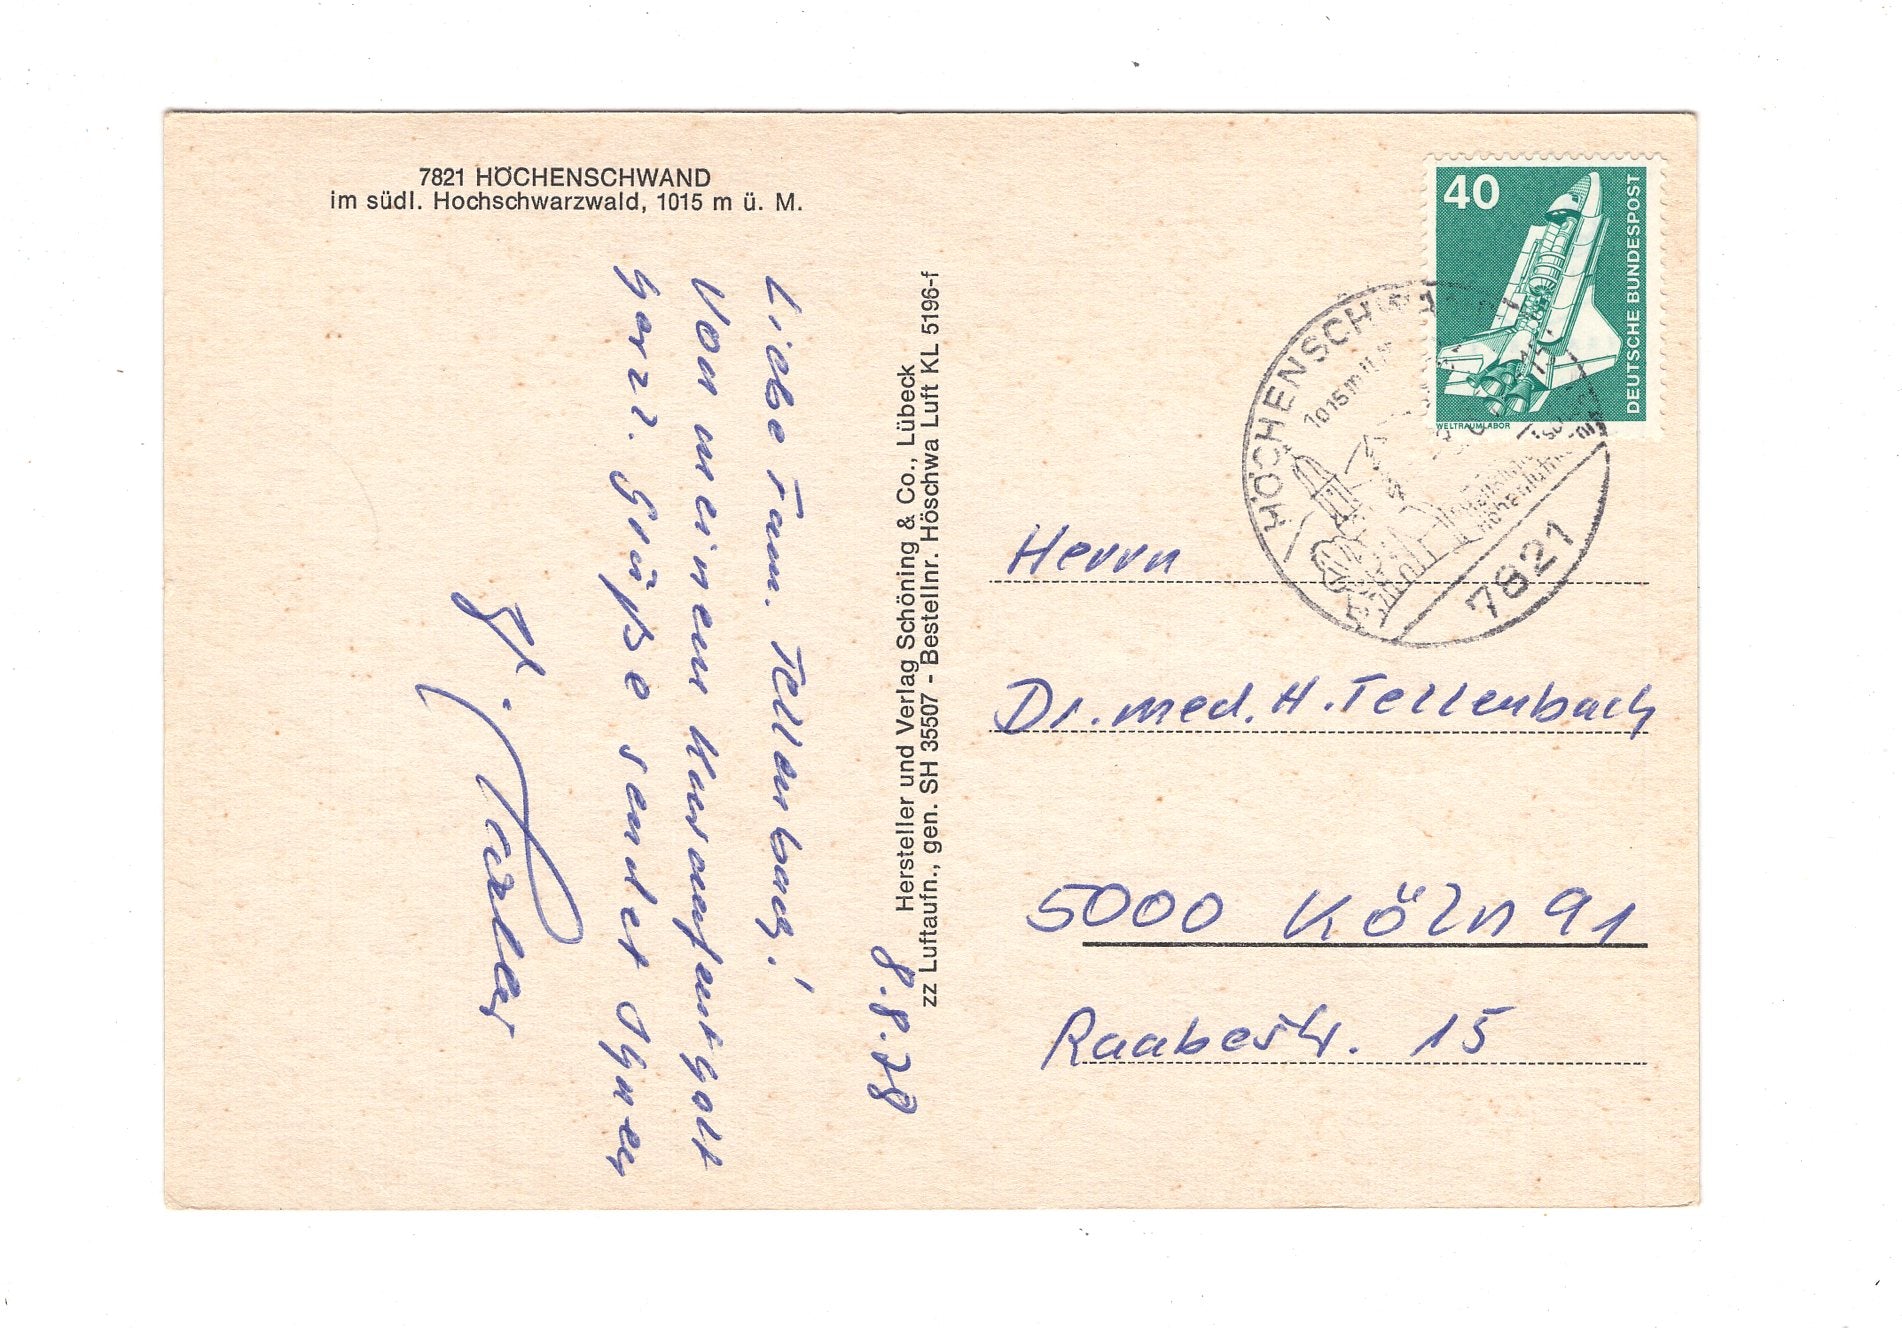 7821 HÖCHENSCHWAND
im südl. Hochschwarzwald, 1015 m ü. M.
8.8.78
Liebe Fam. Tellenbach!
Von meinem Kuraufenthalt
herzl. Grüße sendet Ihnen
Hersteller und Verlag Schöning & Co., Lübeck
zz Luftaufn., gen. SH 35507 - Bestellnr. Höschwa Luft KL 5196-f
40
DEUTSCHE BUNDESPOST
WELTRAUMLABOR
HÖCHENSCHWAND
1015 m ü. M.
7821
Herrn
Dr. med. H. Tellenbach
5000 Köln 91
Raabestr. 15